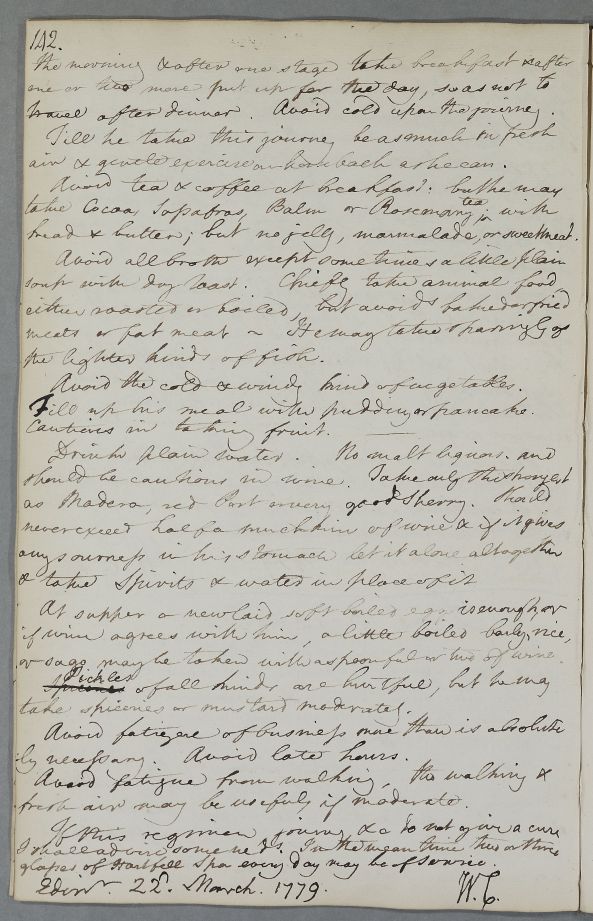 142.
the morning & after one stage take breakfast & after
one or two more put up for the day, so as not to
travel after dinner. Avoid cold upon the journey.
Till he take this journey be as much in fresh
air & gentle exercise on horseback as he can.
Avoid tea & coffee at breakfast: but he may
take Cocoa, Sasafras, Balm or Rosemary tea, with
bread & butter; but no jelly, marmalade, or sweetmeat.
Avoid all broth except sometimes a little plain
soup with dry toast. Chiefly take animal food
either roasted or boiled, but avoid baked or fried
meats or fat meat ~ He may take sparingly of
the lighter kinds of fish.
Avoid the cold & windy kind of vegetables.
Fill up his meal with pudding or pancake.
Cautious in taking fruit.
Drink plain water. No malt liquors. and
should be cautious in wine. Take only the strongest
as Madera, red Port or very good Sherry. Should
never exceed half a mutchkin of wine & if it gives
any sourness in his stomach let it alone altogether
& take Spirits & water in place of it
At supper a new laid soft boiled egg is enough, or
if wine agrees with him, a little boiled barley, rice,
or sago may be taken with a spoonful or two of wine.
Pickles of all kinds are hurtful, but he may
take spiceries or mustard moderately.
Avoid fatigue of business more than is absolute
ly necessary. Avoid late hours.
Avoid fatigue from walking, tho walking &
fresh air may be useful, if moderate.
If this regimen journey &c do not give a cure
I shall advise some meds. In the mean time two or three
glasses of Hartfell Spa every day may be of service.
Edinr. 22d. March. 1779. W.C.